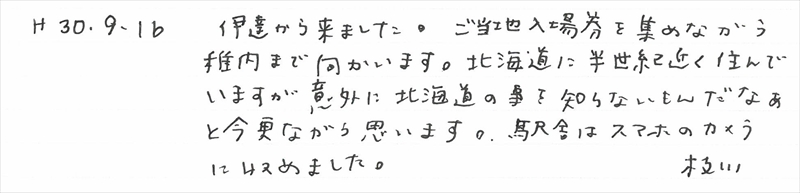 H30.9.16 伊達から来ました。ご当地入場券を集めながら
稚内まで向かいます。北海道に半世紀近く住んで
いますが意外に北海道の事を知らないもんだなぁ
と今更ながら思います。駅舎はスマホのカメラ
に収めました。 枝川